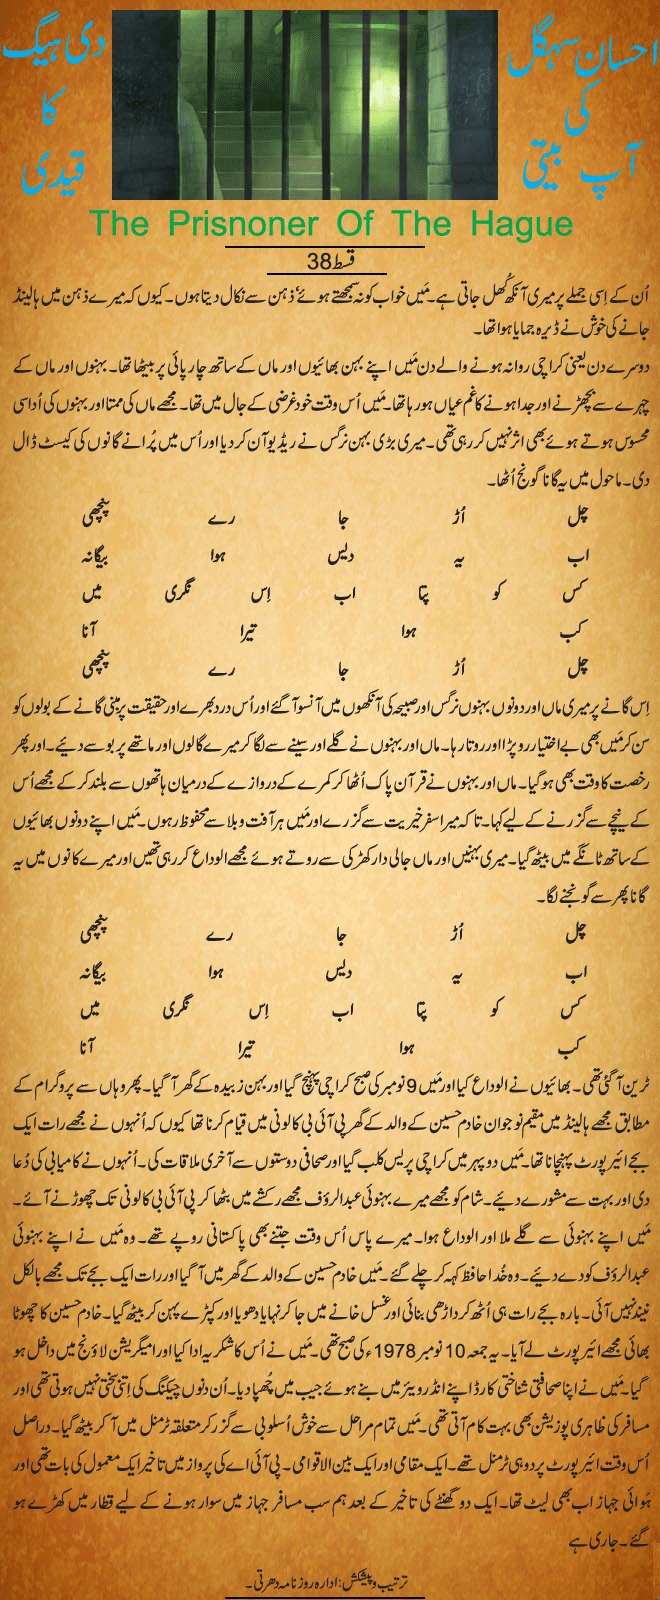 احسان سہگل
کی
آپ بیتی
دی ہیگ
کا
قیدی
The Prisnoner Of The Hague
قسط 38
اُن کے اِسی جملے پر میری آنکھ کُھل جاتی ہے۔ مَیں خواب کو نہ سمجھتے ہوئے ذہن سے نکال دیتا ہوں۔ کیوں کہ میرے ذہن میں ہالینڈ
جانے کی خوش نے ڈیرہ جمایا ہوا تھا۔
دوسرے دن یعنی کراچی روانہ ہونے والے دن مَیں اپنے بہن بھائیوں اور ماں کے ساتھ چارپائی پر بیٹھا تھا۔ بہنوں اور ماں کے
چہرے سے بچھڑنے اور جدا ہونے کا غم عیاں ہو رہا تھا۔ مَیں اُس وقت خود غرضی کے جال میں تھا۔ مجھے ماں کی ممتا اور بہنوں کی اُداسی
محسوس ہوتے ہوئے بھی اثر نہیں کر رہی تھی۔ میری بڑی بہن نرگس نے ریڈیو آن کر دیا اور اُس میں پُرانے گانوں کی کیسٹ ڈال
دی۔ ماحول میں یہ گانا گونج اُٹھا۔
چل اُڑ جا رے پنچھی
اب یہ دیس ہوا بیگانہ
کس کو پتا اب اِس نگری میں
کب ہوا تیرا آنا
چل اُڑ جا رے پنچھی
اِس گانے پر میری ماں اور دونوں بہنوں نرگس اور صبیحہ کی آنکھوں میں آنسو آ گئے اور اُس درد بھرے اور حقیقت پر مبنی گانے کے بولوں کو
سن کر مَیں بھی بے اختیار رو پڑا اور روتا رہا۔ ماں اور بہنوں نے گلے اور سینے سے لگا کر میرے گالوں اور ماتھے پر بوسے دیئے۔ اور پھر
رخصت کا وقت بھی ہو گیا۔ ماں اور بہنوں نے قرآن پاک اُٹھا کر کمرے کے دروازے کے درمیان ہاتھوں سے بلند کر کے مجھے اُس
کے نیچے سے گزرنے کے لیے کہا۔ تا کہ میرا سفر خیریت سے گزرے اور مَیں ہر آفت و بلا سے محفوظ رہوں۔ مَیں اپنے دونوں بھائیوں
کے ساتھ ٹانگے میں بیٹھ گیا۔ میری بہنیں اور ماں جالی دار کھڑکی سے روتے ہوئے مجھے الوداع کر رہی تھیں اور میرے کانوں میں یہ
گانا پھر سے گونجنے لگا۔
چل اُڑ جا رے پنچھی
اب یہ دیس ہوا بیگانہ
کس کو پتا اب اِس نگری میں
کب ہوا تیرا آنا
ٹرین آ گئی تھی۔ بھائیوں نے الوداع کیا اور مَیں 9 نومبر کی صبح کراچی پہنچ گیا اور بہن زبیدہ کے گھر آ گیا۔ پھر وہاں سے پروگرام کے
مطابق مجھے ہالینڈ میں مقیم نوجوان خادم حسین کے والد کے گھر پی آئی بی کالونی میں قیام کرنا تھا کیوں کہ اُنہوں نے مجھے رات ایک
بجے ائیرپورٹ پہنچانا تھا۔ مَیں دوپہر میں کراچی پریس کلب گیا اور صحافی دوستوں سے آخری ملاقات کی۔ اُنہوں نے کامیابی کی دُعا
دی اور بہت سے مشورے دیئے۔ شام کو مجھے میرے بہنوئی عبدالرؤف مجھے رکشے میں بٹھا کر پی آئی بی کالونی تک چھوڑنے آئے۔
مَیں اپنے بہنوئی سے گلے ملا اور الوداع ہوا۔ میرے پاس اُس وقت جتنے بھی پاکستانی روپے تھے۔ وہ مَیں نے اپنے بہنوئی
عبدالرؤف کو دے دیئے۔ وہ خُدا حافظ کہہ کر چلے گئے۔ مَیں خادم حسین کے والد کے گھر میں آ گیا اور رات ایک بجے تک مجھے بالکل
نیند نہیں آئی۔ بارہ بجے رات ہی اُٹھ کر داڑھی بنائی اور غسل خانے میں جا کر نہایا دھویا اور کپڑے پہن کر بیٹھ گیا۔ خادم حسین کا چھوٹا
بھائی مجھے ائیرپورٹ لے آیا۔ یہ جمعہ 10 نومبر 1978ء کی صبح تھی۔ مَیں نے اُس کا شکریہ ادا کیا اور امیگریشن لاؤنج میں داخل ہو
گیا۔ مَیں نے اپنا صحافتی شناختی کارڈ اپنے انڈرویئر میں بنے ہوئے جیب میں چُھپا دیا۔ اُن دنوں چیکنگ کی اِتنی سختی نہیں ہوتی تھی اور
مسافر کی ظاہری پوزیشن بھی بہت کام آتی تھی۔ مَیں تمام مراحل سے خوش اُسلوبی سے گزر کر متعلقہ ٹرمنل میں آ کر بیٹھ گیا۔ دراصل
اُس وقت ائیرپورٹ پر دو ہی ٹرمنل تھے۔ ایک مقامی اور ایک بین الاقوامی۔ پی آئی اے کی پرواز میں تاخیر ایک معمول کی بات تھی اور
ہَوائی جہاز اب بھی لیٹ تھا۔ ایک دو گھنٹے کی تاخیر کے بعد ہم سب مسافر جہاز میں سوار ہونے کے لیے قطار میں کھڑے ہو
گئے۔ جاری ہے
ترتیب و پیشکش: ادارہ روزنامہ دھرتی۔